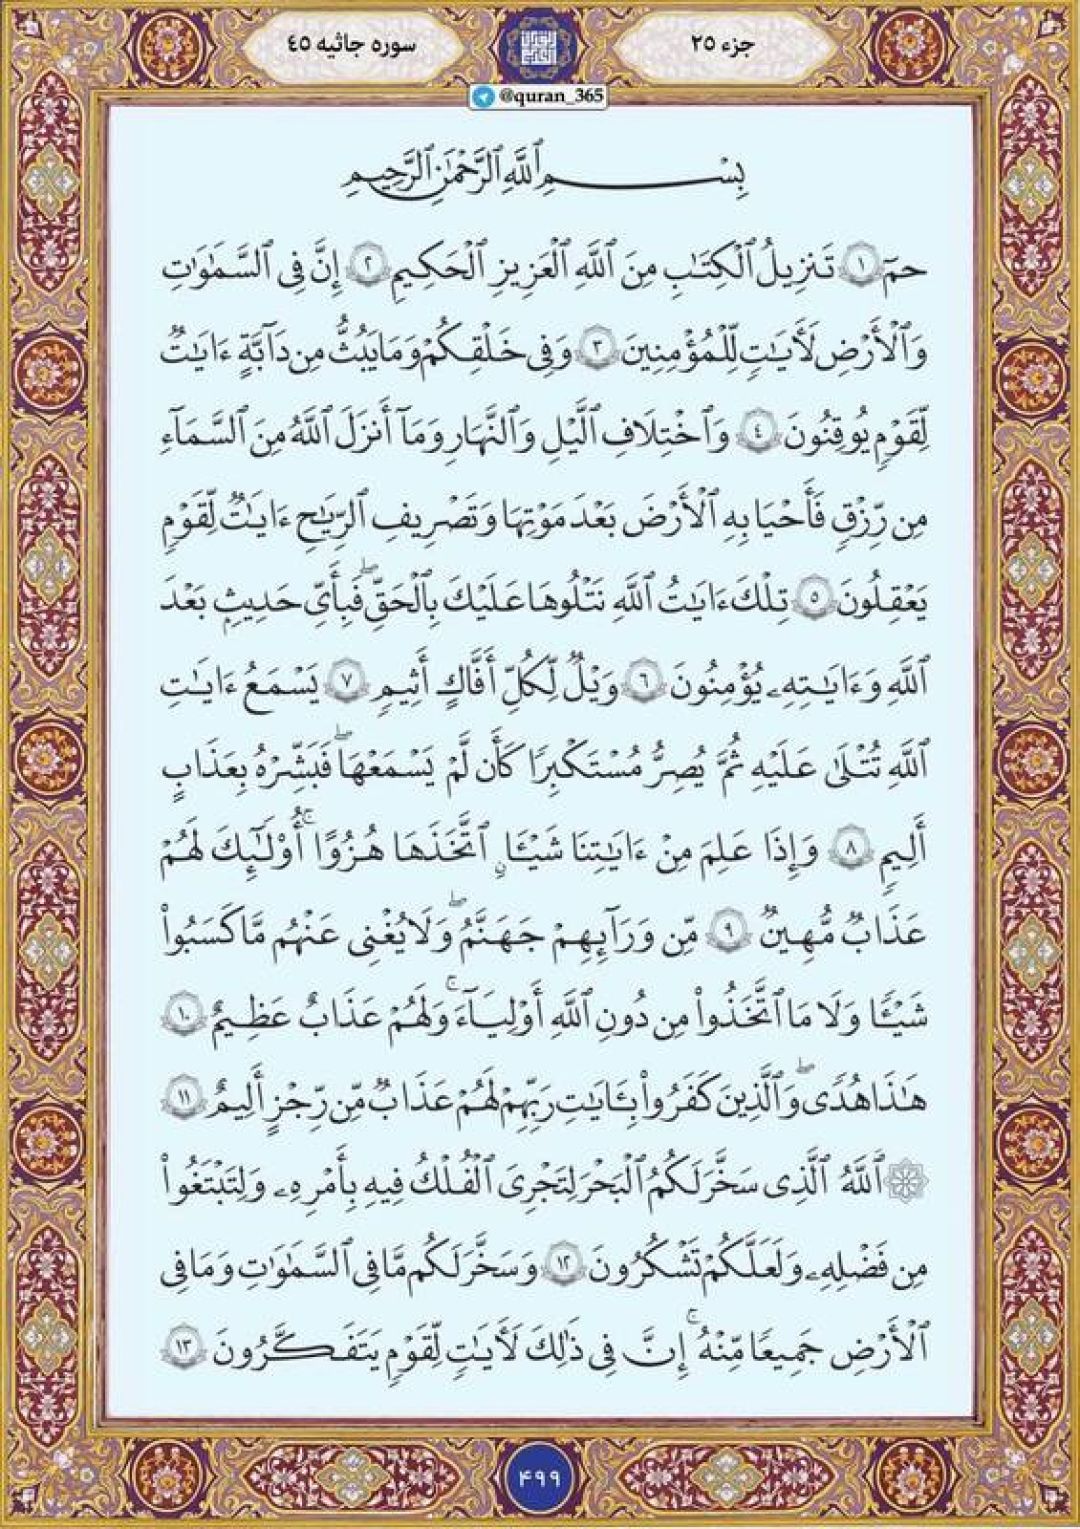 جزء ۲۵
سوره جاثیه ۴۵
@quran_365
بِسْمِ ٱللَّهِ ٱلرَّحْمَٰنِ ٱلرَّحِيمِ
حمٓ ۝١ تَنزِيلُ ٱلْكِتَٰبِ مِنَ ٱللَّهِ ٱلْعَزِيزِ ٱلْحَكِيمِ ۝٢ إِنَّ فِى ٱلسَّمَٰوَٰتِ
وَٱلْأَرْضِ لَءَايَٰتٍ لِّلْمُؤْمِنِينَ ۝٣ وَفِى خَلْقِكُمْ وَمَا يَبُثُّ مِن دَآبَّةٍ ءَايَٰتٌ
لِّقَوْمٍ يُوقِنُونَ ۝٤ وَٱخْتِلَٰفِ ٱلَّيْلِ وَٱلنَّهَارِ وَمَآ أَنزَلَ ٱللَّهُ مِنَ ٱلسَّمَآءِ
مِن رِّزْقٍ فَأَحْيَا بِهِ ٱلْأَرْضَ بَعْدَ مَوْتِهَا وَتَصْرِيفِ ٱلرِّيَٰحِ ءَايَٰتٌ لِّقَوْمٍ
يَعْقِلُونَ ۝٥ تِلْكَ ءَايَٰتُ ٱللَّهِ نَتْلُوهَا عَلَيْكَ بِٱلْحَقِّ ۖ فَبِأَىِّ حَدِيثٍۭ بَعْدَ
ٱللَّهِ وَءَايَٰتِهِۦ يُؤْمِنُونَ ۝٦ وَيْلٌ لِّكُلِّ أَفَّاكٍ أَثِيمٍ ۝٧ يَسْمَعُ ءَايَٰتِ
ٱللَّهِ تُتْلَىٰ عَلَيْهِ ثُمَّ يُصِرُّ مُسْتَكْبِرًا كَأَن لَّمْ يَسْمَعْهَا ۖ فَبَشِّرْهُ بِعَذَابٍ
أَلِيمٍ ۝٨ وَإِذَا عَلِمَ مِنْ ءَايَٰتِنَا شَيْـًٔا ٱتَّخَذَهَا هُزُوًا ۚ أُو۟لَٰٓئِكَ لَهُمْ
عَذَابٌ مُّهِينٌ ۝٩ مِّن وَرَآئِهِمْ جَهَنَّمُ ۖ وَلَا يُغْنِى عَنْهُم مَّا كَسَبُوا۟
شَيْـًٔا وَلَا مَا ٱتَّخَذُوا۟ مِن دُونِ ٱللَّهِ أَوْلِيَآءَ ۖ وَلَهُمْ عَذَابٌ عَظِيمٌ ۝١٠
هَٰذَا هُدًى ۖ وَٱلَّذِينَ كَفَرُوا۟ بِـَٔايَٰتِ رَبِّهِمْ لَهُمْ عَذَابٌ مِّن رِّجْزٍ أَلِيمٌ ۝١١
۞ ٱللَّهُ ٱلَّذِى سَخَّرَ لَكُمُ ٱلْبَحْرَ لِتَجْرِىَ ٱلْفُلْكُ فِيهِ بِأَمْرِهِۦ وَلِتَبْتَغُوا۟
مِن فَضْلِهِۦ وَلَعَلَّكُمْ تَشْكُرُونَ ۝١٢ وَسَخَّرَ لَكُم مَّا فِى ٱلسَّمَٰوَٰتِ وَمَا فِى
ٱلْأَرْضِ جَمِيعًا مِّنْهُ ۚ إِنَّ فِى ذَٰلِكَ لَءَايَٰتٍ لِّقَوْمٍ يَتَفَكَّرُونَ ۝١٣
۴۹۹